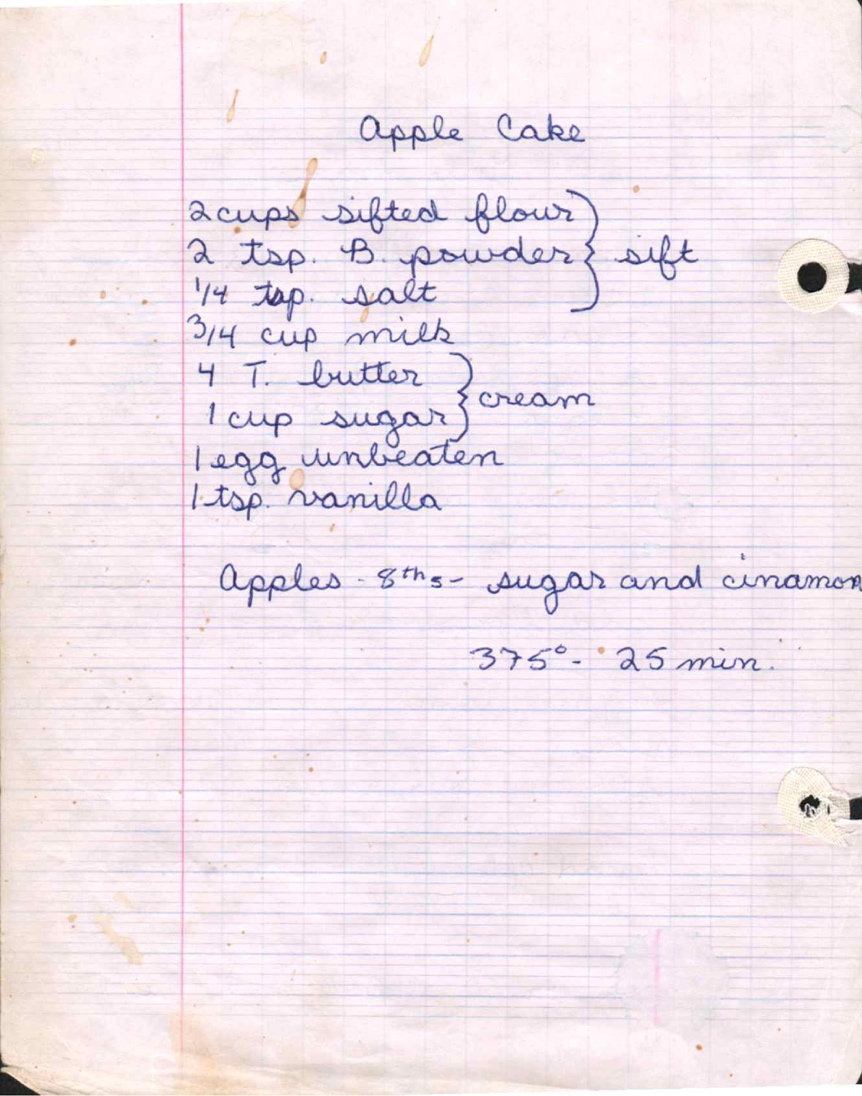 Apple Cake
2 cups sifted flour
2 tsp. B. powder } sift
1/4 tsp. salt
3/4 cup milk
4 T. butter
1 cup sugar } cream
1 egg unbeaten
1 tsp. vanilla
Apples - 8ths - sugar and cinamon
375° - 25 min.